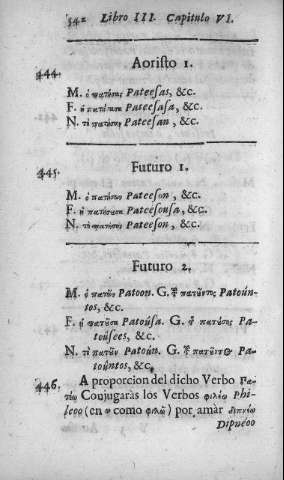 342 Libro III. Capitulo VI.
Aoristo 1.
444.
M. ὁ πατήσας Pateesas, &c.
F. ἡ πατήσασα Pateesasa, &c.
N. τὸ πατῆσαν Pateesan, &c.
Futuro 1.
445.
M. ὁ πατήσων Pateeson, &c.
F. ἡ πατήσουσα Pateesousa, &c.
N. τὸ πατῆσον Pateeson, &c.
Futuro 2.
M. ὁ πατῶν Patoon. G. τοῦ πατοῦντος Patoún-
tos, &c.
F. ἡ πατοῦσα Patoúsa. G. τῆς πατούσης Pa-
toúsees, &c.
N. τὸ πατοῦν Patoún. G. τοῦ πατοῦντος Pa-
toúntos, &c.
446. A proporcion del dicho Verbo Πα-
τέω Conjugaràs los Verbos φιλέω Phi-
leoo (en ῶ como φιλῶ) por amàr δειπνέω
Dipnéoo